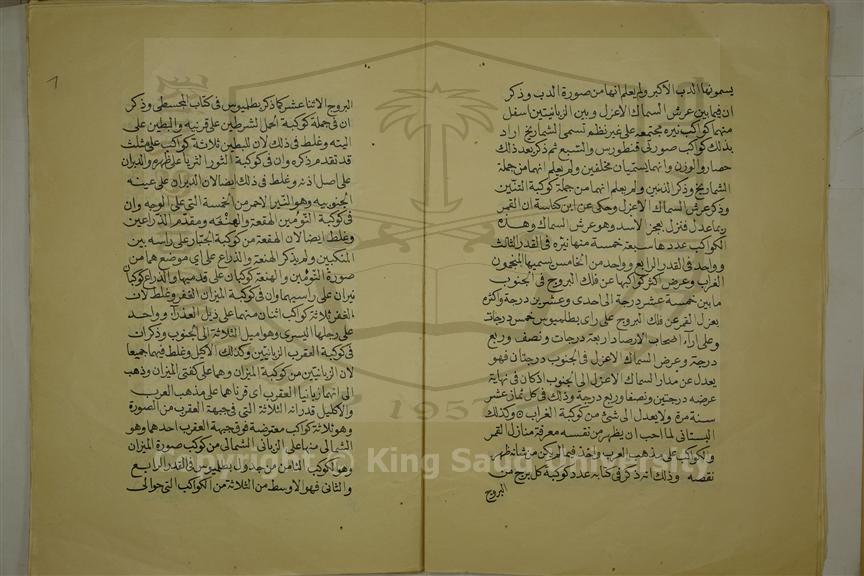 يسمونها الدب الأكبر ولم يعلم انها من صورة الدب وذكر
ان فيما بين عرش السماك الاعزل وبين الزبانيين اسفل
منهما كواكب نيره مجتمعه على غير نظم تسمى الشماريخ اراد
بذلك كواكب صورتى قنطورس والسبع ثم ذكر بعد ذلك
حضار والوزن وانهما يسميان محلفين ولم يعلم انهما من جملة
الشماريخ وذكر الذئبين ولم يعلم انهما من جملة كوكبة التنين
وذكر عرش السماك الاعزل وحكى عن ابن كناسة ان القمر
ربما عدل فنزل بعجز الاسد وهو عرش السماك وهذه
الكواكب عددها سبعة خمسة منها نيرة فى القدر الثالث
وواحد فى القدر الرابع وواحد من الخامس يسميها المنجمون
الغراب وعرض اكثر كواكبها عن فلك البروج فى الجنوب
ما بين خمسة عشر درجة الى احدى وعشرين درجة واكثر ما
يعزل القمر عن فلك البروج على راى بطلميوس خمس درجات
وعلى آراء اصحاب الارصاد اربعة درجات ونصف وربع
درجة وعرض السماك الاعزل فى الجنوب درجتان فهو
يعدل عن مدار السماك الاعزل الى الجنوب اذ كان فى نهاية
عرضه درجتين ونصفا وربع درجة وذلك فى كل ثمانى عشر
سنة مرة ولا يعدل الى شئ من كوكبة الغراب وكذلك
البستانى لما احب ان يظهر من نفسه معرفة منازل القمر
والكواكب على مذهب العرب واخذ فيما لم يكن من شانه ظهر
نقصه وذلك انه ذكر فى كتابه عدد كوكبة كل برج من
البروج
البروج الاثنا عشر كما ذكر بطلميوس فى كتاب المجسطى وذكر
ان فى جملة كوكبة الحمل الشرطين على قرنيه والبطين على
اليته وغلط فى ذلك لان للبطين ثلاثة كواكب على مثلث
قد تقدم ذكره وان فى كوكبة الثور الثريا على ظهره والدبران
على اصل اذنه وغلط فى ذلك ايضا لان الدبران على عينه
الجنوبيه وهو النير الاحمر من الخمسة التى على الوجه وان
فى كوكبة التوئمين الهقعة والهنعه ومقدم الذراعين
وغلط ايضا لان الهقعة من كوكبة الجبار على راسه بين
المنكبين ولم يذكر الهنعة والذراع على اى موضع هما من
صورة التوئمين والهنعة كوكبان على قدميها والذراع كوكبان
نيران على راسيهما وان فى كوكبة الميزان الغفر وغلط لان
الغفر ثلاثة كواكب اثنان منهما على ذيل العذرآء وواحد
على رجلها اليسرى وهو اميل الثلاثة الى الجنوب وذكر ان
فى كوكبة العقرب الزبانيين وكذلك الاكليل وغلط فيهما جميعا
لان الزبانيين من كوكبة الميزان وهما على كفتى الميزان وذهب
الى انهما زبانيا العقرب اى قرناهما على مذهب العرب
والاكليل قدرانه الثلاثة التى فى جبهة العقرب من الصورة
وهو ثلاثة كواكب معترضة فوق جبهة العقرب احدهما وهو
الشمالى منها على الزبانى الشمالى من كوكب صورة الميزان
وهو الكوكب الثامن من جدول بطلميوس فى القدر الرابع
والثانى فهو الاوسط من الثلاثة من الكواكب التى حوالى
Copyright © King Saud University
1957